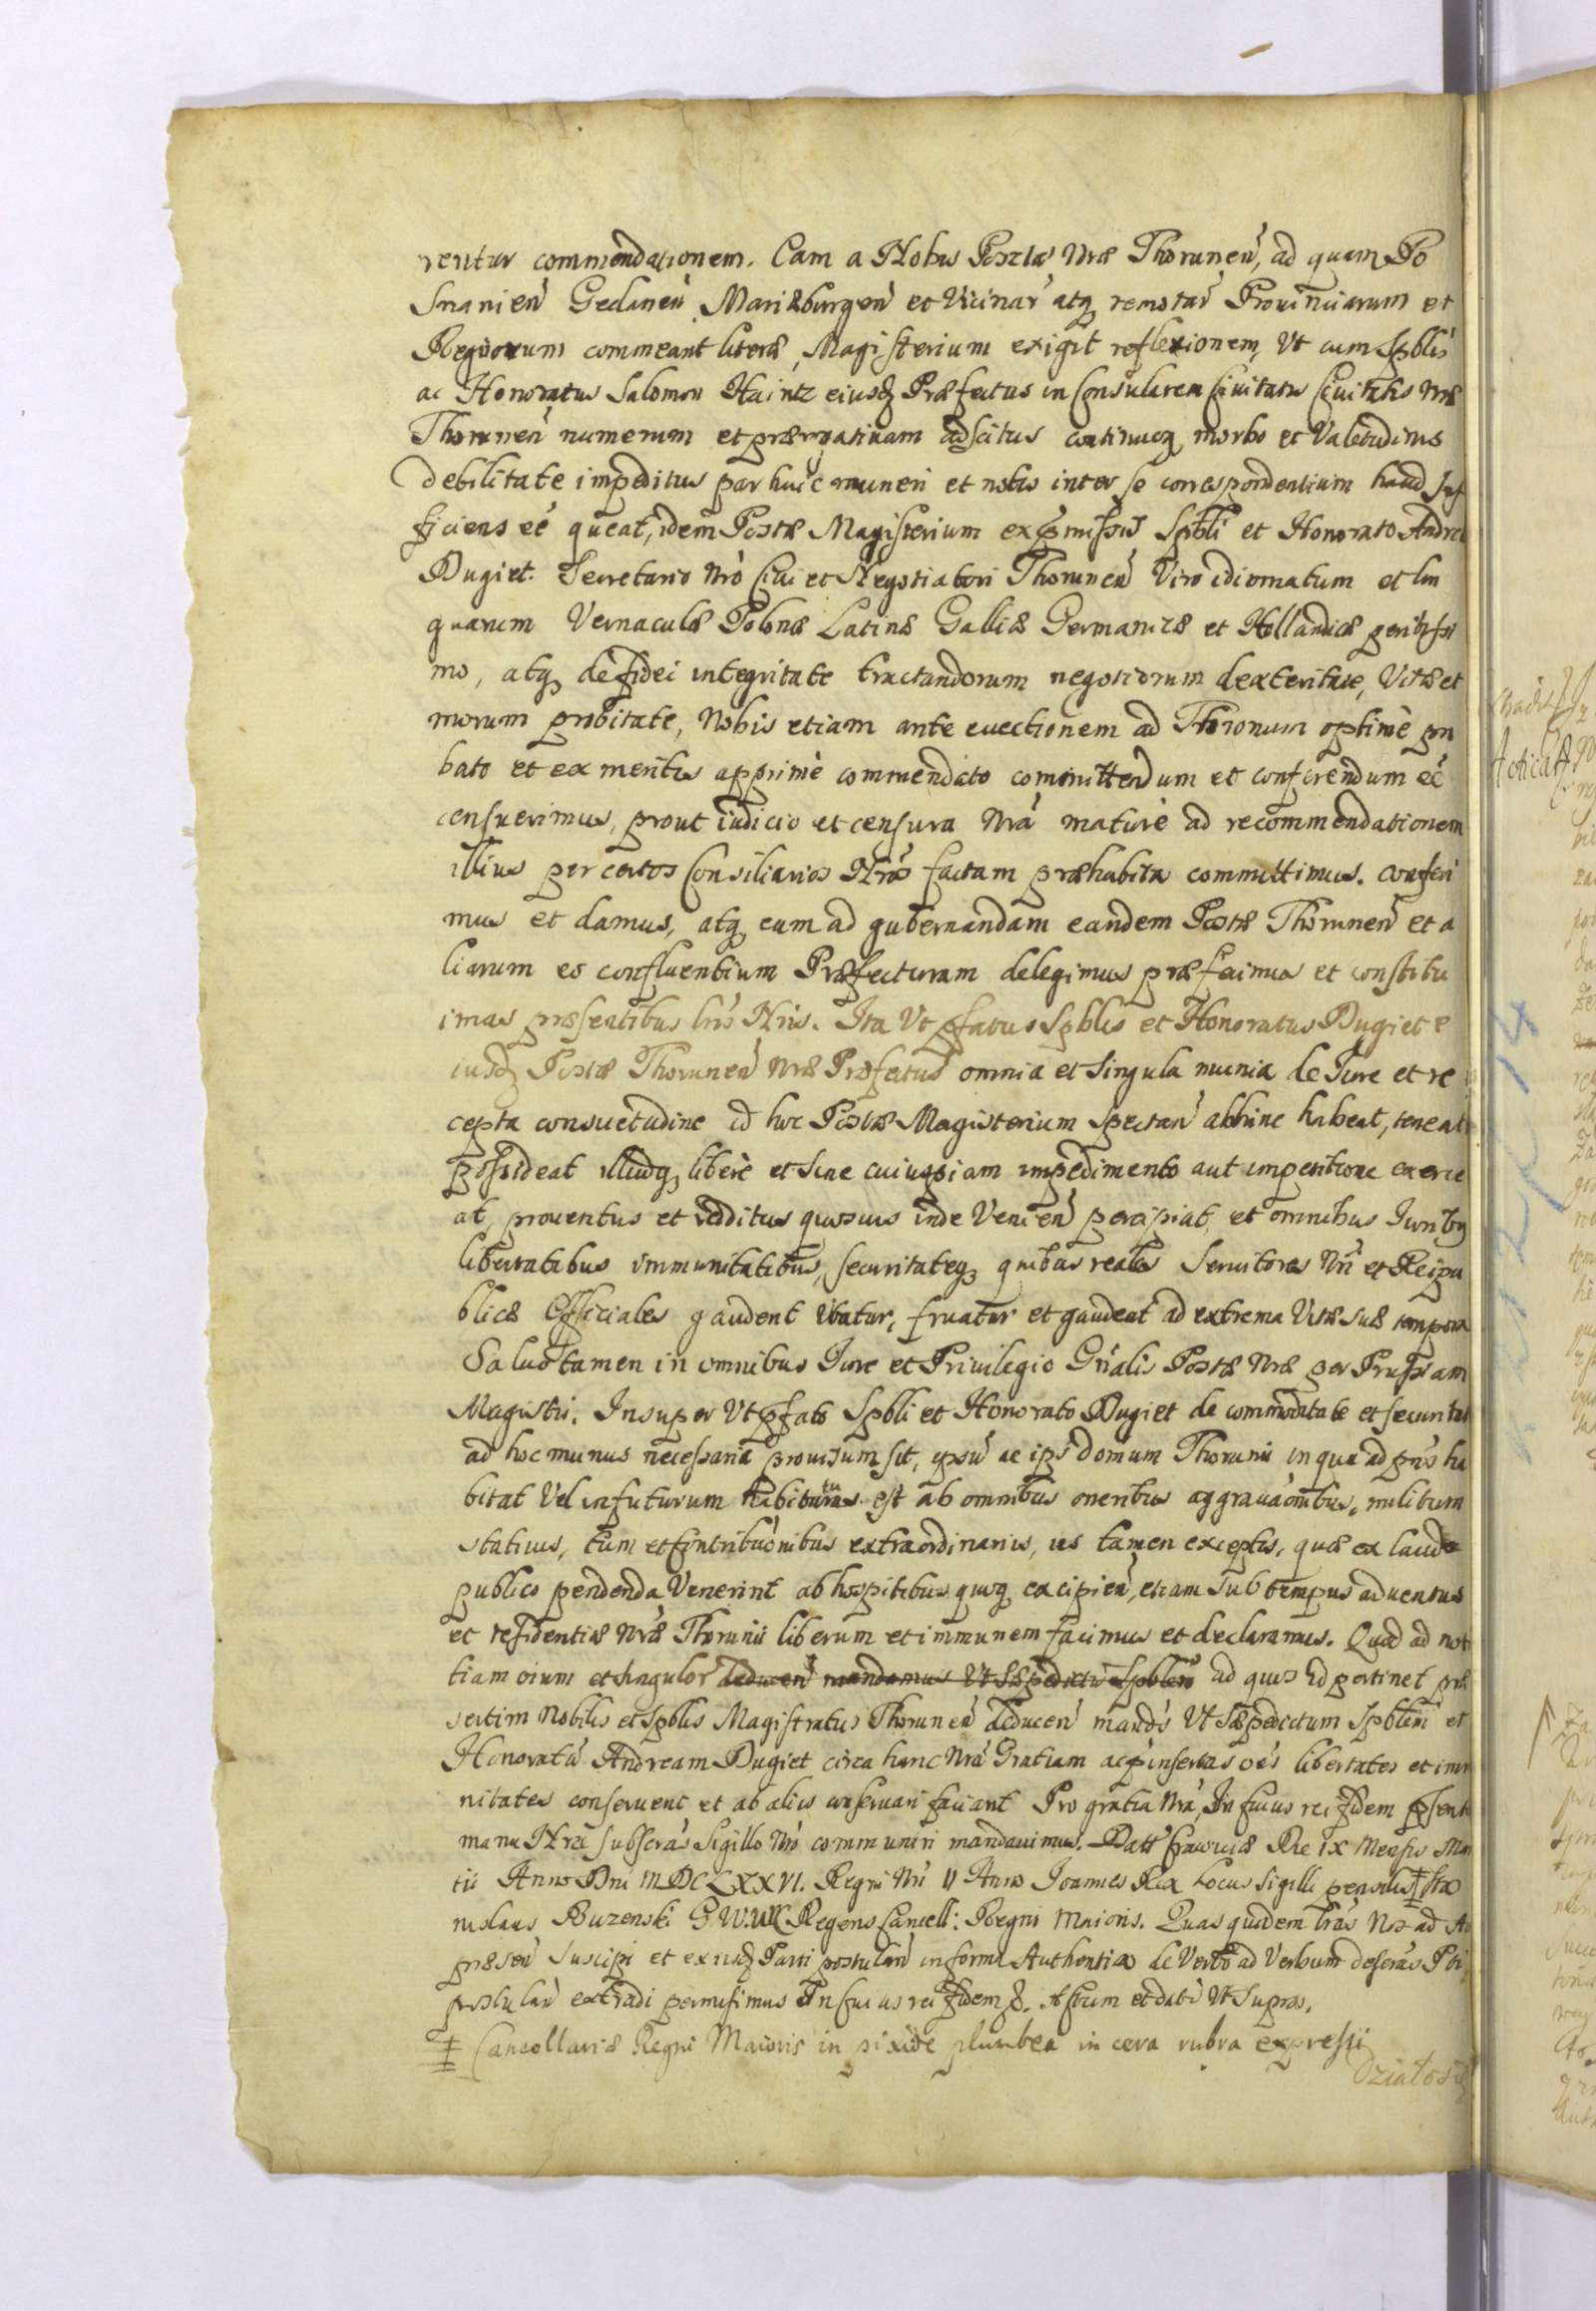 rentur commendationem. Eam a Nobis Postae Nrae Thorunen̄, ad quam Po
snanien̄ Gedanen̄ Mariaeburgen̄ et Vicinar̄ atq3 remotar̄ Provinciarum et
Regnorum commeant literae, Magisterium exigit reflexionem, Vt cum Spblis
ac Honoratus Salomon Haintz eiusd Praefectus in Consularem Civitatis Civitatis Nrae
Thorunen̄ numerum et praerogativam adscitus continuoq3 morbo et Valetudinis
debilitate impeditus par huic muneri et notis inter se correspondentium haud suf
ficiens eē queat, idem Postae Magisterium ex praemissis Spbli et Honorato Andreae
Dugiet Secretario Nrō Civi et Negotiatori Thorunen̄ Viro idiomatum et lin
guarum Vernaculae Polonae Latinae Gallicae Germanicae et Hollandicae peritissi
mo, atq3 de fidei integritate tractandorum negotiorum dexteritate, Vitae et
morum probitate, Nobis etiam ante evectionem ad Thronum optimè pro
bato et ex meritis apprimè commendato committendum et conferendum eē
censuerimus, prout iudicio et censura Nrā maturè ad recommendationem
illius per certos Consiliarios Nrōs factam praehabita committimus. conferi
mus et damus, atq3 eum ad gubernandam eandem Postae Thorunen̄ et a
liarum eo confluentium Praefecturam delegimus praeficimus et constitu
imus praesentibus lrīs Nrīs. Ita Vt pfatus Spblis et Honoratus Dugiet e
iusd Postae Thorunen̄ Nrae Praefectus omnia et singula munia de Iure et re
cepta consuetudine ad hoc Postae Magisterium spectan̄ abhinc habeat, teneat
possideat illudq3 liberè et sine cuiuspiam impedimento aut impetitione exerce
at, proventus et redditus quosvis inde Venien̄ percipiat, et omnibus Iuribus
libertatibus immunitatibus, securitateq3 quibus reales Servitores Nrī et Reipu
blicae Officiales gaudent utatur, fruatur et gaudeat ad extrema Vitae suae tempora
Salvo tamen in omnibus Iure et Privilegio Gn̄alis Postae Nrae per Prussiam
Magistri. Insuper Vt pfato Spbli et Honorato Dugiet de commoditate et securitate
ad hoc munus necessaria provisum sit, ipsū ac ips̄ domum Thorunii in qua ad pn̄s ha
bitat Vel in futurum habiturus est ab omnibus oneribus aggravāōnibus, militum
stativis, tum et Contribuōnibus extraordinariis, iis tamen exceptis, quae ex laudo
publico pendenda Venerint ab hospitibus quoq3 excipien̄, etiam sub tempus adventus
et residentiae Nrae Thorunii liberum et immunem facimus et declaramus. Quod ad noti
tiam oīum et singulor̄ deducen̄ mandamus Vt saepedictū Spblem ad quos id pertinet prae
sertim Nobilis et Spblis Magistratus Thorunen̄ deducen̄ mandō Vt saepedictum Spblem et
Honoratū Andream Dugiet circa hanc Nrā Gratiam ac pinsertas oēs libertates et immu
nitates conservent et ab aliis conservari faciant Pro gratia Nrā, In cuius rei fidem psent
manu Nra subscrās Sigillo Nrō communiri mandavimus. Datt Cracoviae Die IX Mensis Mar
tii Anno Dni MDCLXXVI. Regni Nri II Anno Ioannes Rex Locus Sigilli pensilis ‡ Sta
nislaus Buzenski Regens Cancell: Regni Maioris. Quas quidem lrās Nos ad A
praesen̄ suscipi et ex iisd Parti postulan̄ in forma Authentica de Verbo ad Verbum descrās Pti
postulan̄ extradi permisimus In cuius rei fidem &. Actum et datū Vt Supra.
‡ Cancellariae Regni Maioris in pixide plumbea in cera rubra expressi